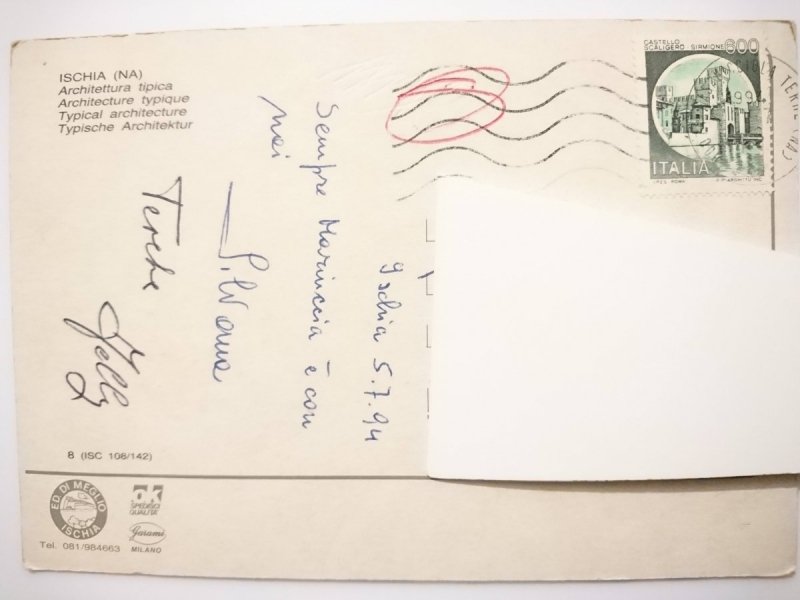 ISCHIA (NA)
Architettura tipica
Architecture typique
Typical architecture
Typische Architektur
CASTELLO
SCALIGERO SIRMIONE
600
ITALIA
Ischia 5.7.94
Sempre Marinccia è con
noi
Silvana
8 (ISC 108/142)
ED. DI MEGLIO
ISCHIA
Tel. 081/984663
ok
SPEDISCI
QUALITÀ
Garami
MILANO